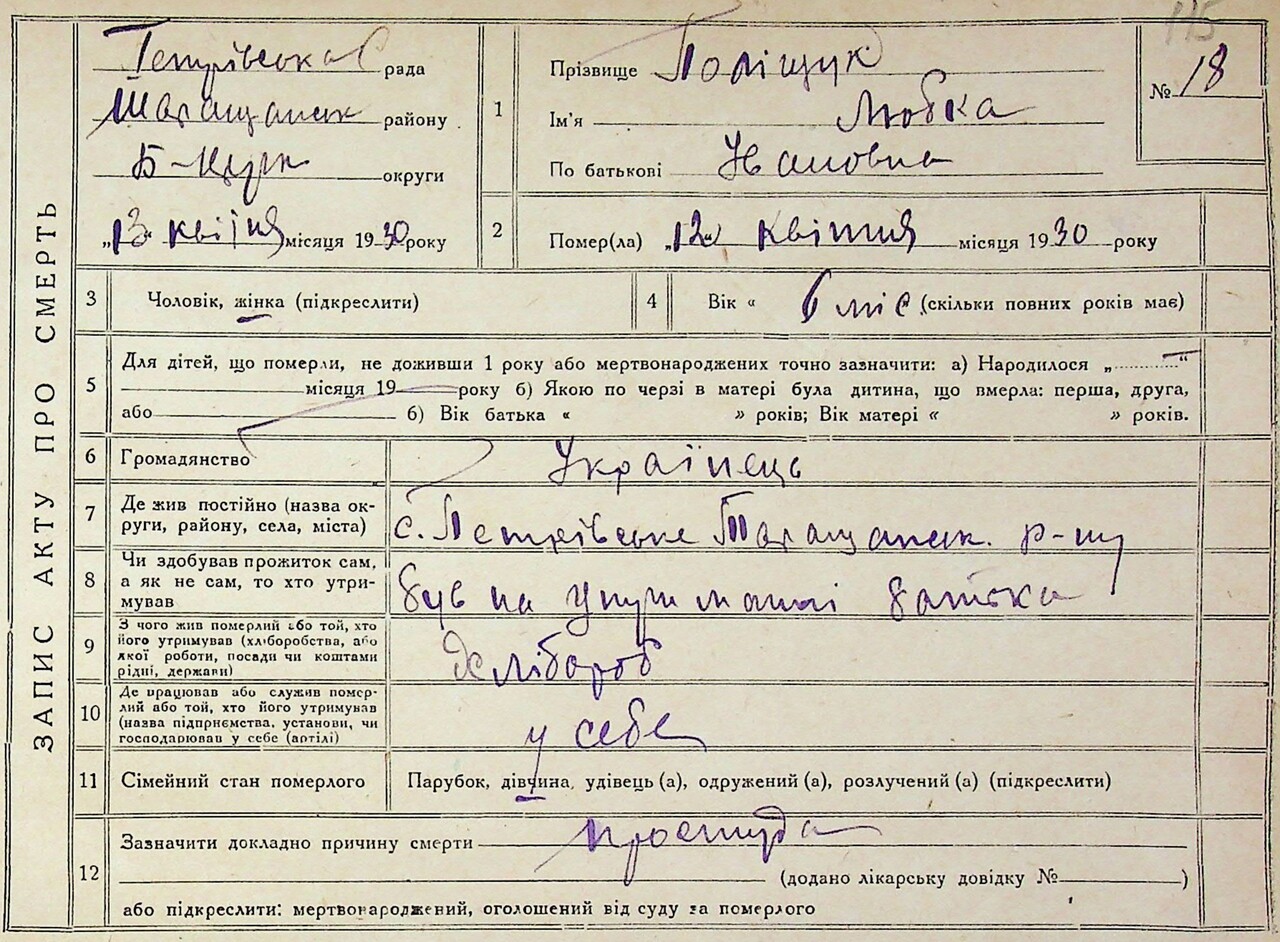 175
ЗАПИС АКТУ ПРО СМЕРТЬ
Петрівська рада
Таращанськ району
Б-Церк округи
„13“ квітня місяця 1930 року
1 Прізвище Поліщук
Ім'я Любка
По батькові Івановна
№ 18
2 Помер(ла) „12“ квітня місяця 1930 року
3 Чоловік, жінка (підкреслити)
4 Вік « 6 міс (скільки повних років має)
5 Для дітей, що померли, не доживши 1 року або мертвонароджених точно зазначити: а) Народилося „ “
місяця 19 року б) Якою по черзі в матері була дитина, що вмерла: перша, друга,
або б) Вік батька « » років; Вік матері « » років.
6 Громадянство Українець
7 Де жив постійно (назва ок-
руги, району, села, міста) с. Петрівське Таращанськ. р-ну
8 Чи здобував прожиток сам,
а як не сам, то хто утри-
мував був на утриманні батька
9 З чого жив померлий або той, хто
його утримував (хліборобства, або
якої роботи, посади чи коштами
рідні, держави) Хлібороб
10 Де працював або служив помер-
лий або той, хто його утримував
(назва підприємства, установи, чи
господарював у себе (артілі) у себе
11 Сімейний стан померлого Парубок, дівчина, удівець (а), одружений (а), розлучений (а) (підкреслити)
12 Зазначити докладно причину смерти простуда
(додано лікарську довідку № )
або підкреслити: мертвонароджений, оголошений від суду за померлого